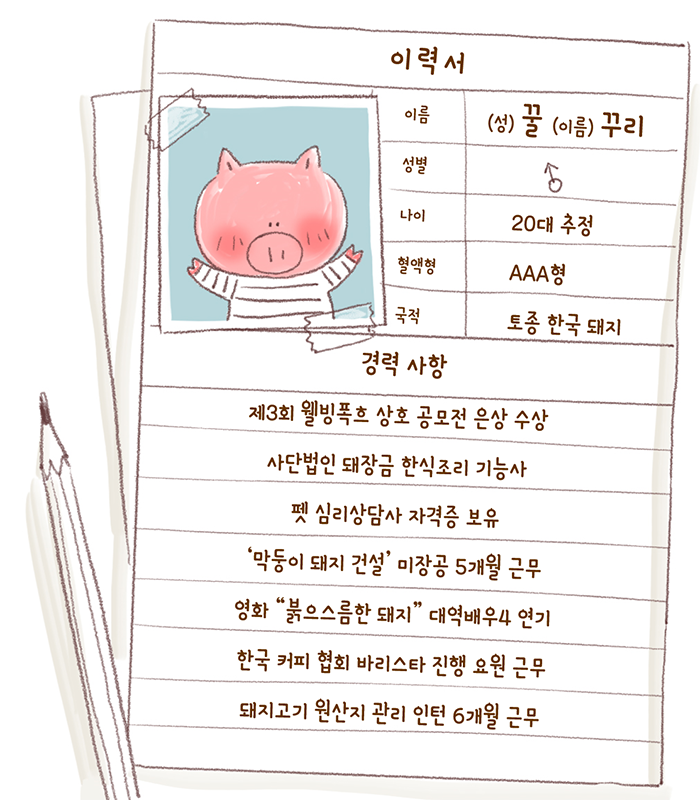 이력서
이름 (성) 꿀 (이름) 꾸리
성별
나이 20대 추정
혈액형 AAA형
국적 토종 한국 돼지
경력 사항
제3회 웰빙폭흐 상호 공모전 은상 수상
사단법인 돼장금 한식조리 기능사
펫 심리상담사 자격증 보유
‘막둥이 돼지 건설’ 미장공 5개월 근무
영화 “붉으스름한 돼지” 대역배우4 연기
한국 커피 협회 바리스타 진행 요원 근무
돼지고기 원산지 관리 인턴 6개월 근무